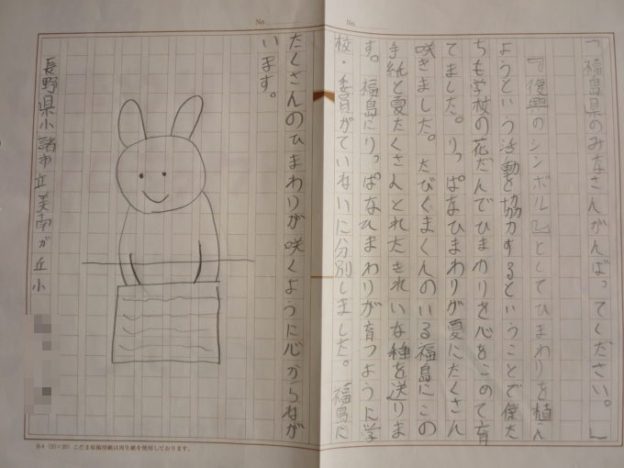 No.
No.
「福島県のみなさんがんばってください。」
『復興のシンボル』としてひまわりを植え
ようという活動を協力するということで僕た
ちも学校の花だんでひまわりを心をこめて育
てました。りっぱなひまわりが夏にたくさん
咲きました。たびくまくんのいる福島にこの
手紙と夏たくさんとれたきれいな種を送りま
す。福島にりっぱなひまわりが育つように学
校・委員がていねいに分別しました。福島に
たくさんのひまわりが咲くように心からねが
います。
長野県小諸市立美南ガ丘小
こだま原稿用紙は再生紙を使用しております。